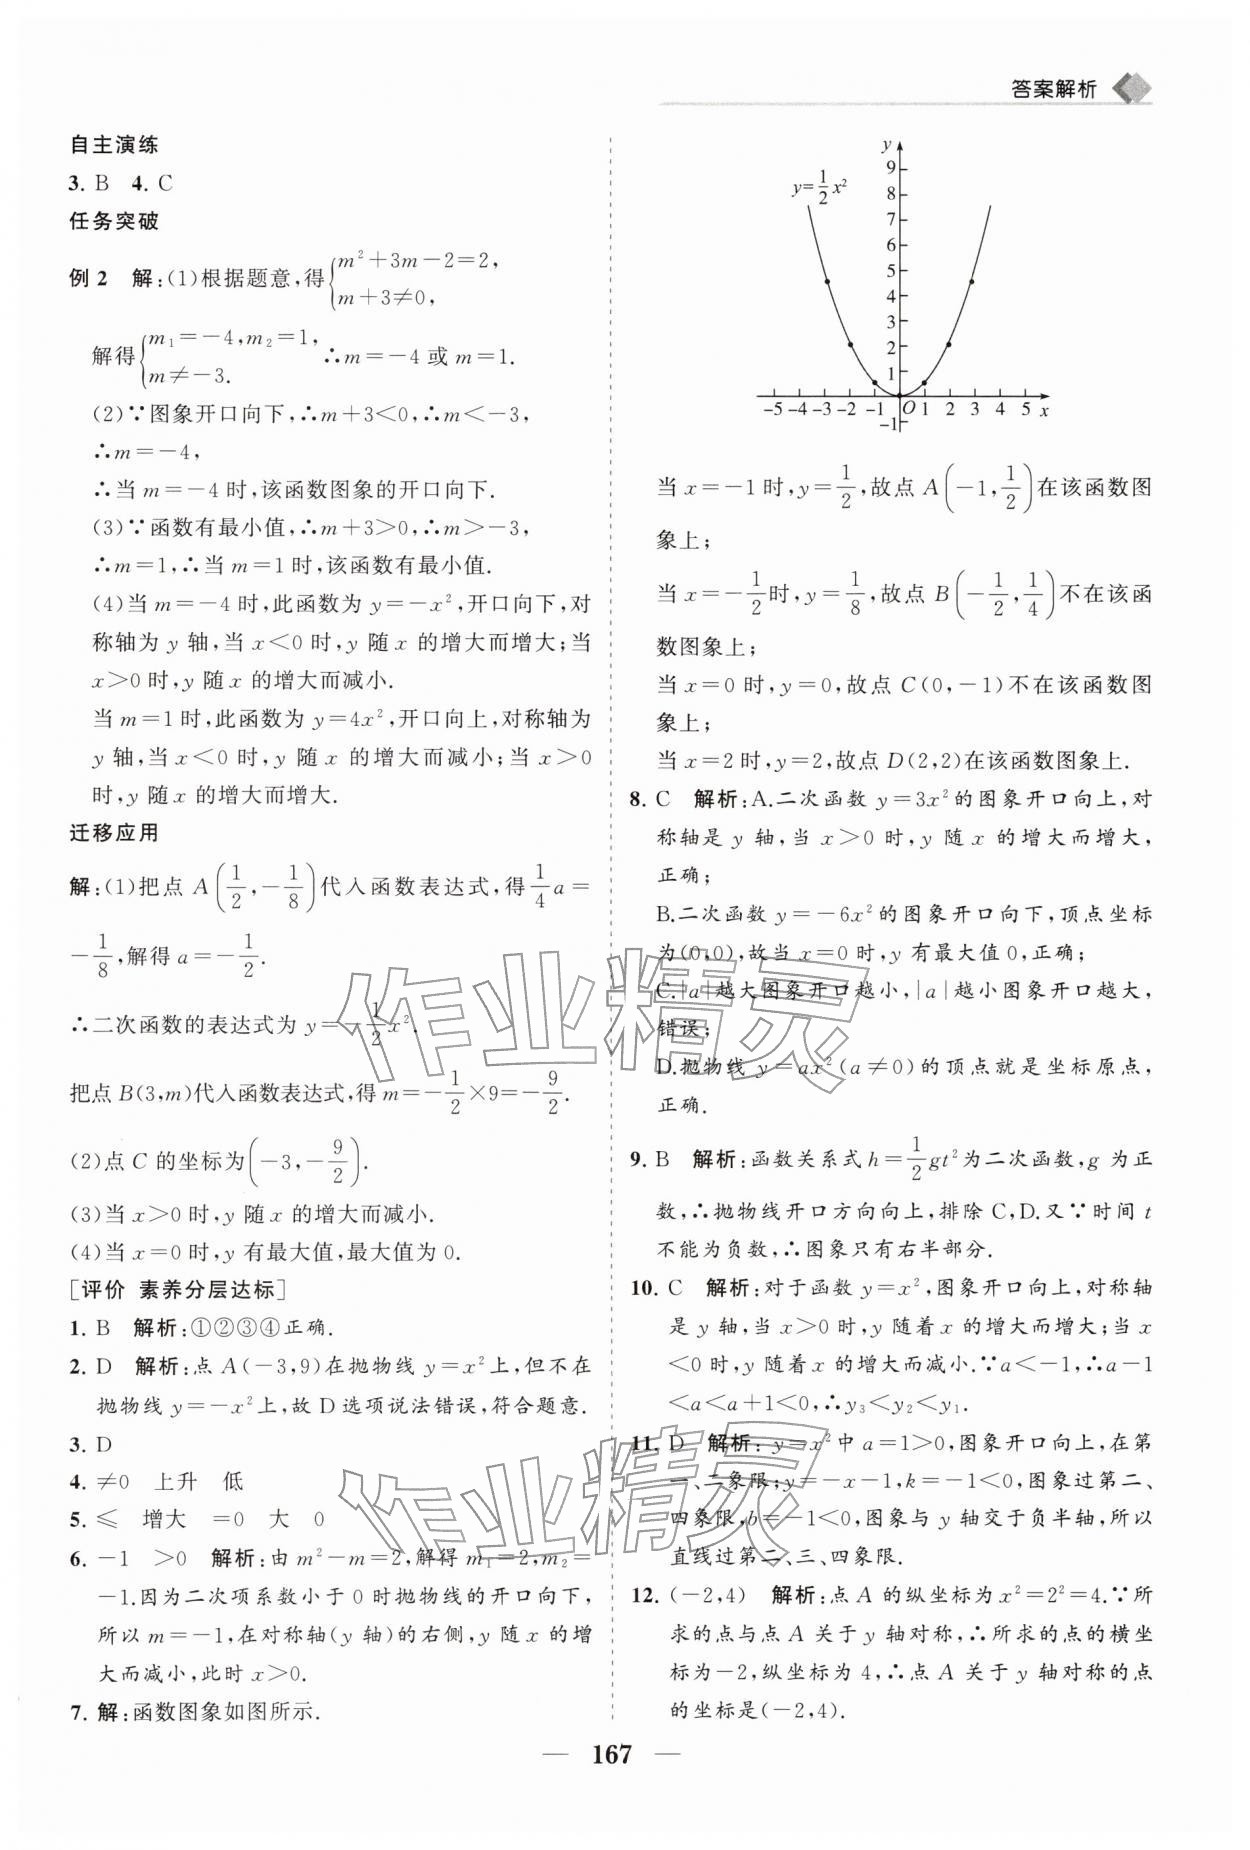 答案解析
自主演练
3. B 4. C
任务突破
例2 解:(1)根据题意,得{m²+3m−2=2,
m+3≠0,
解得{m₁=−4,m₂=1,
m≠−3.
∴m=−4或m=1.
(2)∵图象开口向下,∴m+3<0,∴m<−3,
∴m=−4,
∴当m=−4时,该函数图象的开口向下.
(3)∵函数有最小值,∴m+3>0,∴m>−3,
∴m=1,∴当m=1时,该函数有最小值.
(4)当m=−4时,此函数为y=−x²,开口向下,对
称轴为y轴,当x<0时,y随x的增大而增大;当
x>0时,y随x的增大而减小.
当m=1时,此函数为y=4x²,开口向上,对称轴为
y轴,当x<0时,y随x的增大而减小;当x>0
时,y随x的增大而增大.
迁移应用
解:(1)把点A(1/2,−1/8)代入函数表达式,得1/4a=
−1/8,解得a=−1/2.
∴二次函数的表达式为y=−1/2x².
把点B(3,m)代入函数表达式,得m=−1/2×9=−9/2.
(2)点C的坐标为(−3,−9/2).
(3)当x>0时,y随x的增大而减小.
(4)当x=0时,y有最大值,最大值为0.
[评价 素养分层达标]
1. B 解析:①②③④正确.
2. D 解析:点A(−3,9)在抛物线y=x²上,但不在
抛物线y=−x²上,故D选项说法错误,符合题意.
3. D
4. ≠0 上升 低
5. ≤ 增大 =0 大 0
6. −1 >0 解析:由m²−m=2,解得m₁=2,m₂=
−1.因为二次项系数小于0时抛物线的开口向下,
所以m=−1,在对称轴(y轴)的右侧,y随x的增
大而减小,此时x>0.
7. 解:函数图象如图所示.
y
y=1/2x²
9
8
7
6
5
4
3
2
1
−5 −4 −3 −2 −1 O 1 2 3 4 5 x
−1
当x=−1时,y=1/2,故点A(−1,1/2)在该函数图
象上;
当x=−1/2时,y=1/8,故点B(−1/2,1/4)不在该函
数图象上;
当x=0时,y=0,故点C(0,−1)不在该函数图
象上;
当x=2时,y=2,故点D(2,2)在该函数图象上.
8. C 解析:A.二次函数y=3x²的图象开口向上,对
称轴是y轴,当x>0时,y随x的增大而增大,
正确;
B.二次函数y=−6x²的图象开口向下,顶点坐标
为(0,0),故当x=0时,y有最大值0,正确;
C.|a|越大图象开口越小,|a|越小图象开口越大,
错误;
D.抛物线y=ax²(a≠0)的顶点就是坐标原点,
正确.
9. B 解析:函数关系式h=1/2gt²为二次函数,g为正
数,∴抛物线开口方向向上,排除C,D.又∵时间t
不能为负数,∴图象只有右半部分.
10. C 解析:对于函数y=x²,图象开口向上,对称轴
是y轴,当x>0时,y随着x的增大而增大;当x
<0时,y随着x的增大而减小.∵a<−1,∴a−1
<a<a+1<0,∴y₃<y₂<y₁.
11. D 解析:y=x²中a=1>0,图象开口向上,在第
一、二象限;y=−x−1,k=−1<0,图象过第二、
四象限,b=−1<0,图象与y轴交于负半轴,所以
直线过第二、三、四象限.
12. (−2,4) 解析:点A的纵坐标为x²=2²=4.∵所
求的点与点A关于y轴对称,∴所求的点的横坐
标为−2,纵坐标为4,∴点A关于y轴对称的点
的坐标是(−2,4).
作业精灵
作业精灵
— 167 —